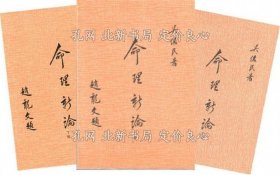 孔网 北新书局 定价良心
孔网 北新书局 定价良心
命理新論
趙龍文題
吳俊民著
命理新論
趙龍文題
吳俊民著
命理新論